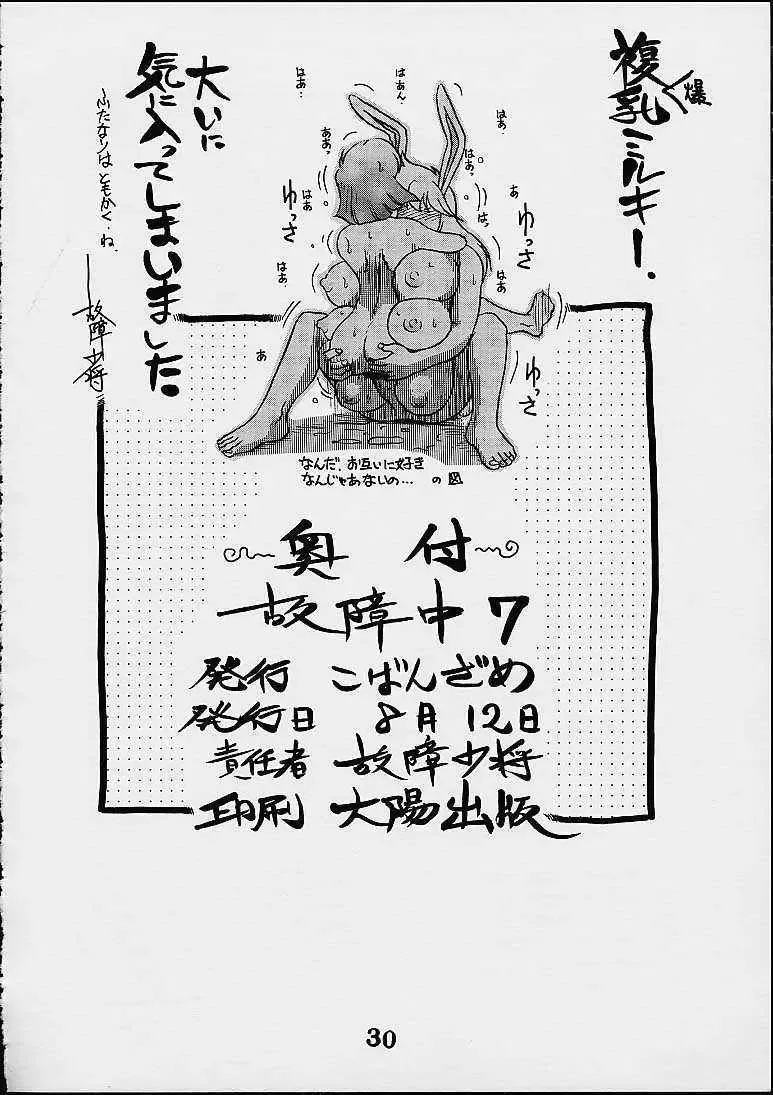 複乳ミルキー、
爆
大いに
気に入ってしまいました。
〜ふたなりはともかく、ね、
故障少将
はあ…
はあ…
はあん…
はあ…
ああっ
はあっ
はあ
ゆっさ
はっ
あ
ゆっさ
はあ
はあ
あ
ゆっさ
なんだ、お互いに好き
なんじゃあないの… の図
奥付
故障中7
発行 こばんざめ
発行日 8月12日
責任者 故障少将
印刷 大陽出版
30